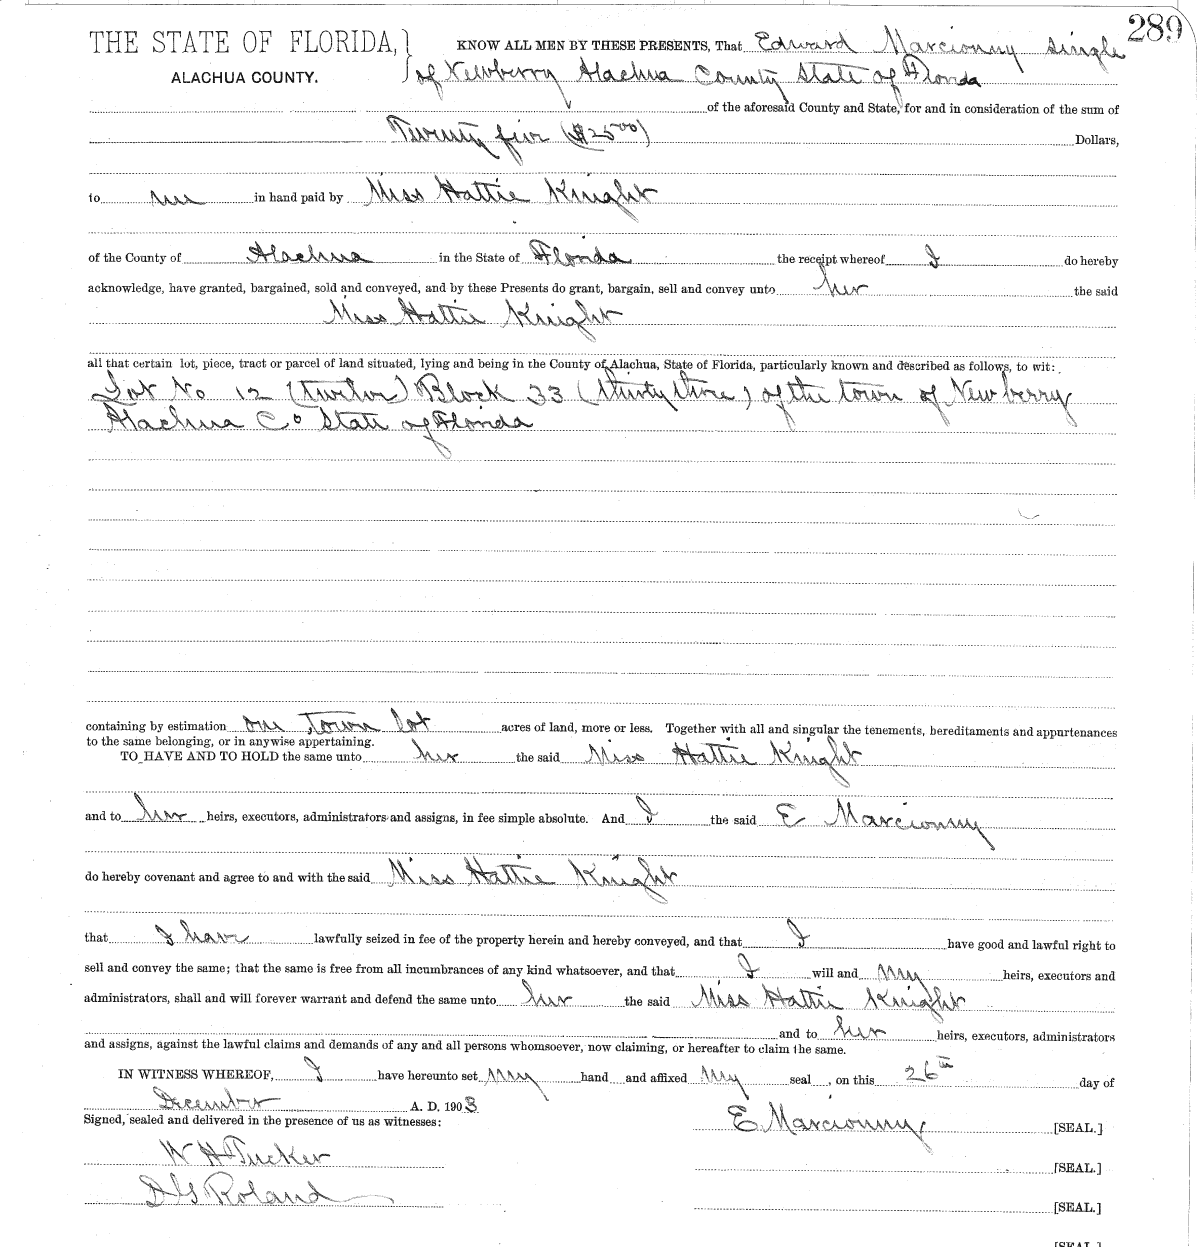 289
THE STATE OF FLORIDA,
ALACHUA COUNTY.
KNOW ALL MEN BY THESE PRESENTS, That Edward Marcionny single
of Newberry Alachua County State of Florida
of the aforesaid County and State, for and in consideration of the sum of
Twenty five ($25.00) Dollars,
to me in hand paid by Miss Hattie Knight
of the County of Alachua in the State of Florida the receipt whereof I do hereby
acknowledge, have granted, bargained, sold and conveyed, and by these Presents do grant, bargain, sell and convey unto her the said
Miss Hattie Knight
all that certain lot, piece, tract or parcel of land situated, lying and being in the County of Alachua, State of Florida, particularly known and described as follows, to wit:
Lot No 12 (Twelve) Block 33 (thirty three) of the town of Newberry
Alachua Co State of Florida
containing by estimation one town lot acres of land, more or less. Together with all and singular the tenements, hereditaments and appurtenances
to the same belonging, or in anywise appertaining.
TO HAVE AND TO HOLD the same unto her the said Miss Hattie Knight
and to her heirs, executors, administrators and assigns, in fee simple absolute. And I the said E Marcionny
do hereby covenant and agree to and with the said Miss Hattie Knight
that I have lawfully seized in fee of the property herein and hereby conveyed, and that I have good and lawful right to
sell and convey the same; that the same is free from all incumbrances of any kind whatsoever, and that I will and my heirs, executors and
administrators, shall and will forever warrant and defend the same unto her the said Miss Hattie Knight
and to her heirs, executors, administrators
and assigns, against the lawful claims and demands of any and all persons whomsoever, now claiming, or hereafter to claim the same.
IN WITNESS WHEREOF, I have hereunto set my hand and affixed my seal, on this 26th day of
December A. D. 1903
Signed, sealed and delivered in the presence of us as witnesses:
E. Marcionny [SEAL.]
W H Tucker
[SEAL.]
D G Roland
[SEAL.]
[SEAL.]